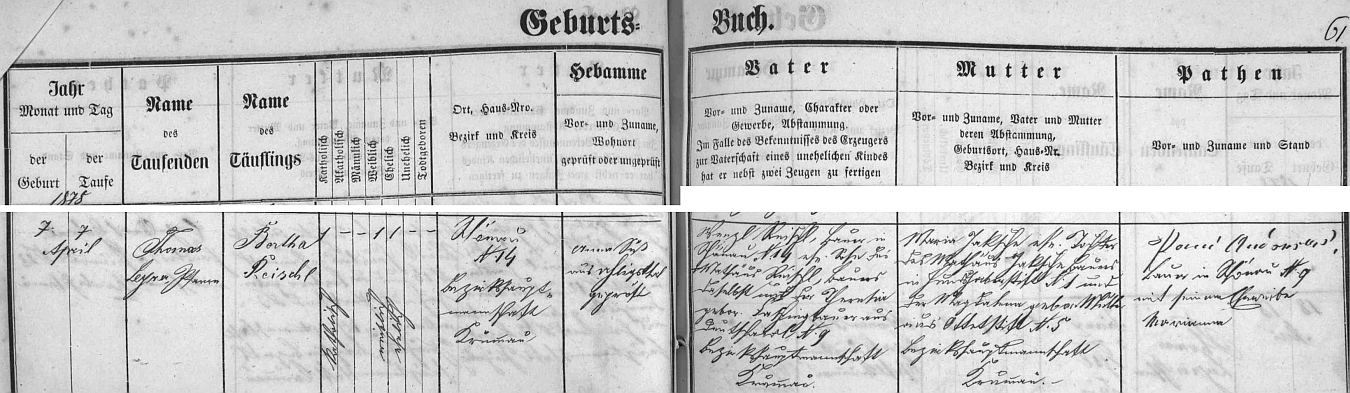 Geburts-
Buch.
61
Jahr
Monat und Tag
der
Geburt
der
Taufe
1878
Name
des
Taufenden
Name
des
Täuflings
Katholisch
Akatholisch
Männlich
Weiblich
Ehelich
Unehelich
Todtgeboren
Ort, Haus-Nro.
Bezirk und Kreis
Hebamme
Vor- und Zuname,
Wohnort
geprüft oder ungeprüft
Vater
Vor- und Zuname, Charakter oder
Gewerbe, Abstammung.
Im Falle des Bekenntnisses des Erzeugers
zur Vaterschaft eines unehelichen Kindes
hat er nebst zwei Zeugen zu fertigen
Mutter
Vor- und Zuname, Vater und Mutter
deren Abstammung,
Geburtsort, Haus-Nr.
Bezirk und Kreis
Pathen
Vor- und Zuname und Stand
7. 7
April
Thomas
Bertha
Reischl
1 – – 1 1 – –
katholisch
weiblich
ehelich
Schönau
N. 14
Bezirkshaupt-
mannschaft
Krumau.
Anna Süß
aus
geprüft
Wenzl Reischl, Bauer in
Schönau N. 14 ehe. Sohn des
Mathäus Reischl, Bauers
daselbst und der Theresia
gebor. aus
N. 9
Bezirkshauptmannschaft
Krumau.
Maria Jaksche ehe. Tochter
des Mathäus Jaksche Bauers
in N. 1 und
der Magdalena gebor.
aus Ottetstift N. 5
Bezirkshauptmannschaft
Krumau.
Bauer in Schönau N. 9
mit seinem Eheweibe
Marianna